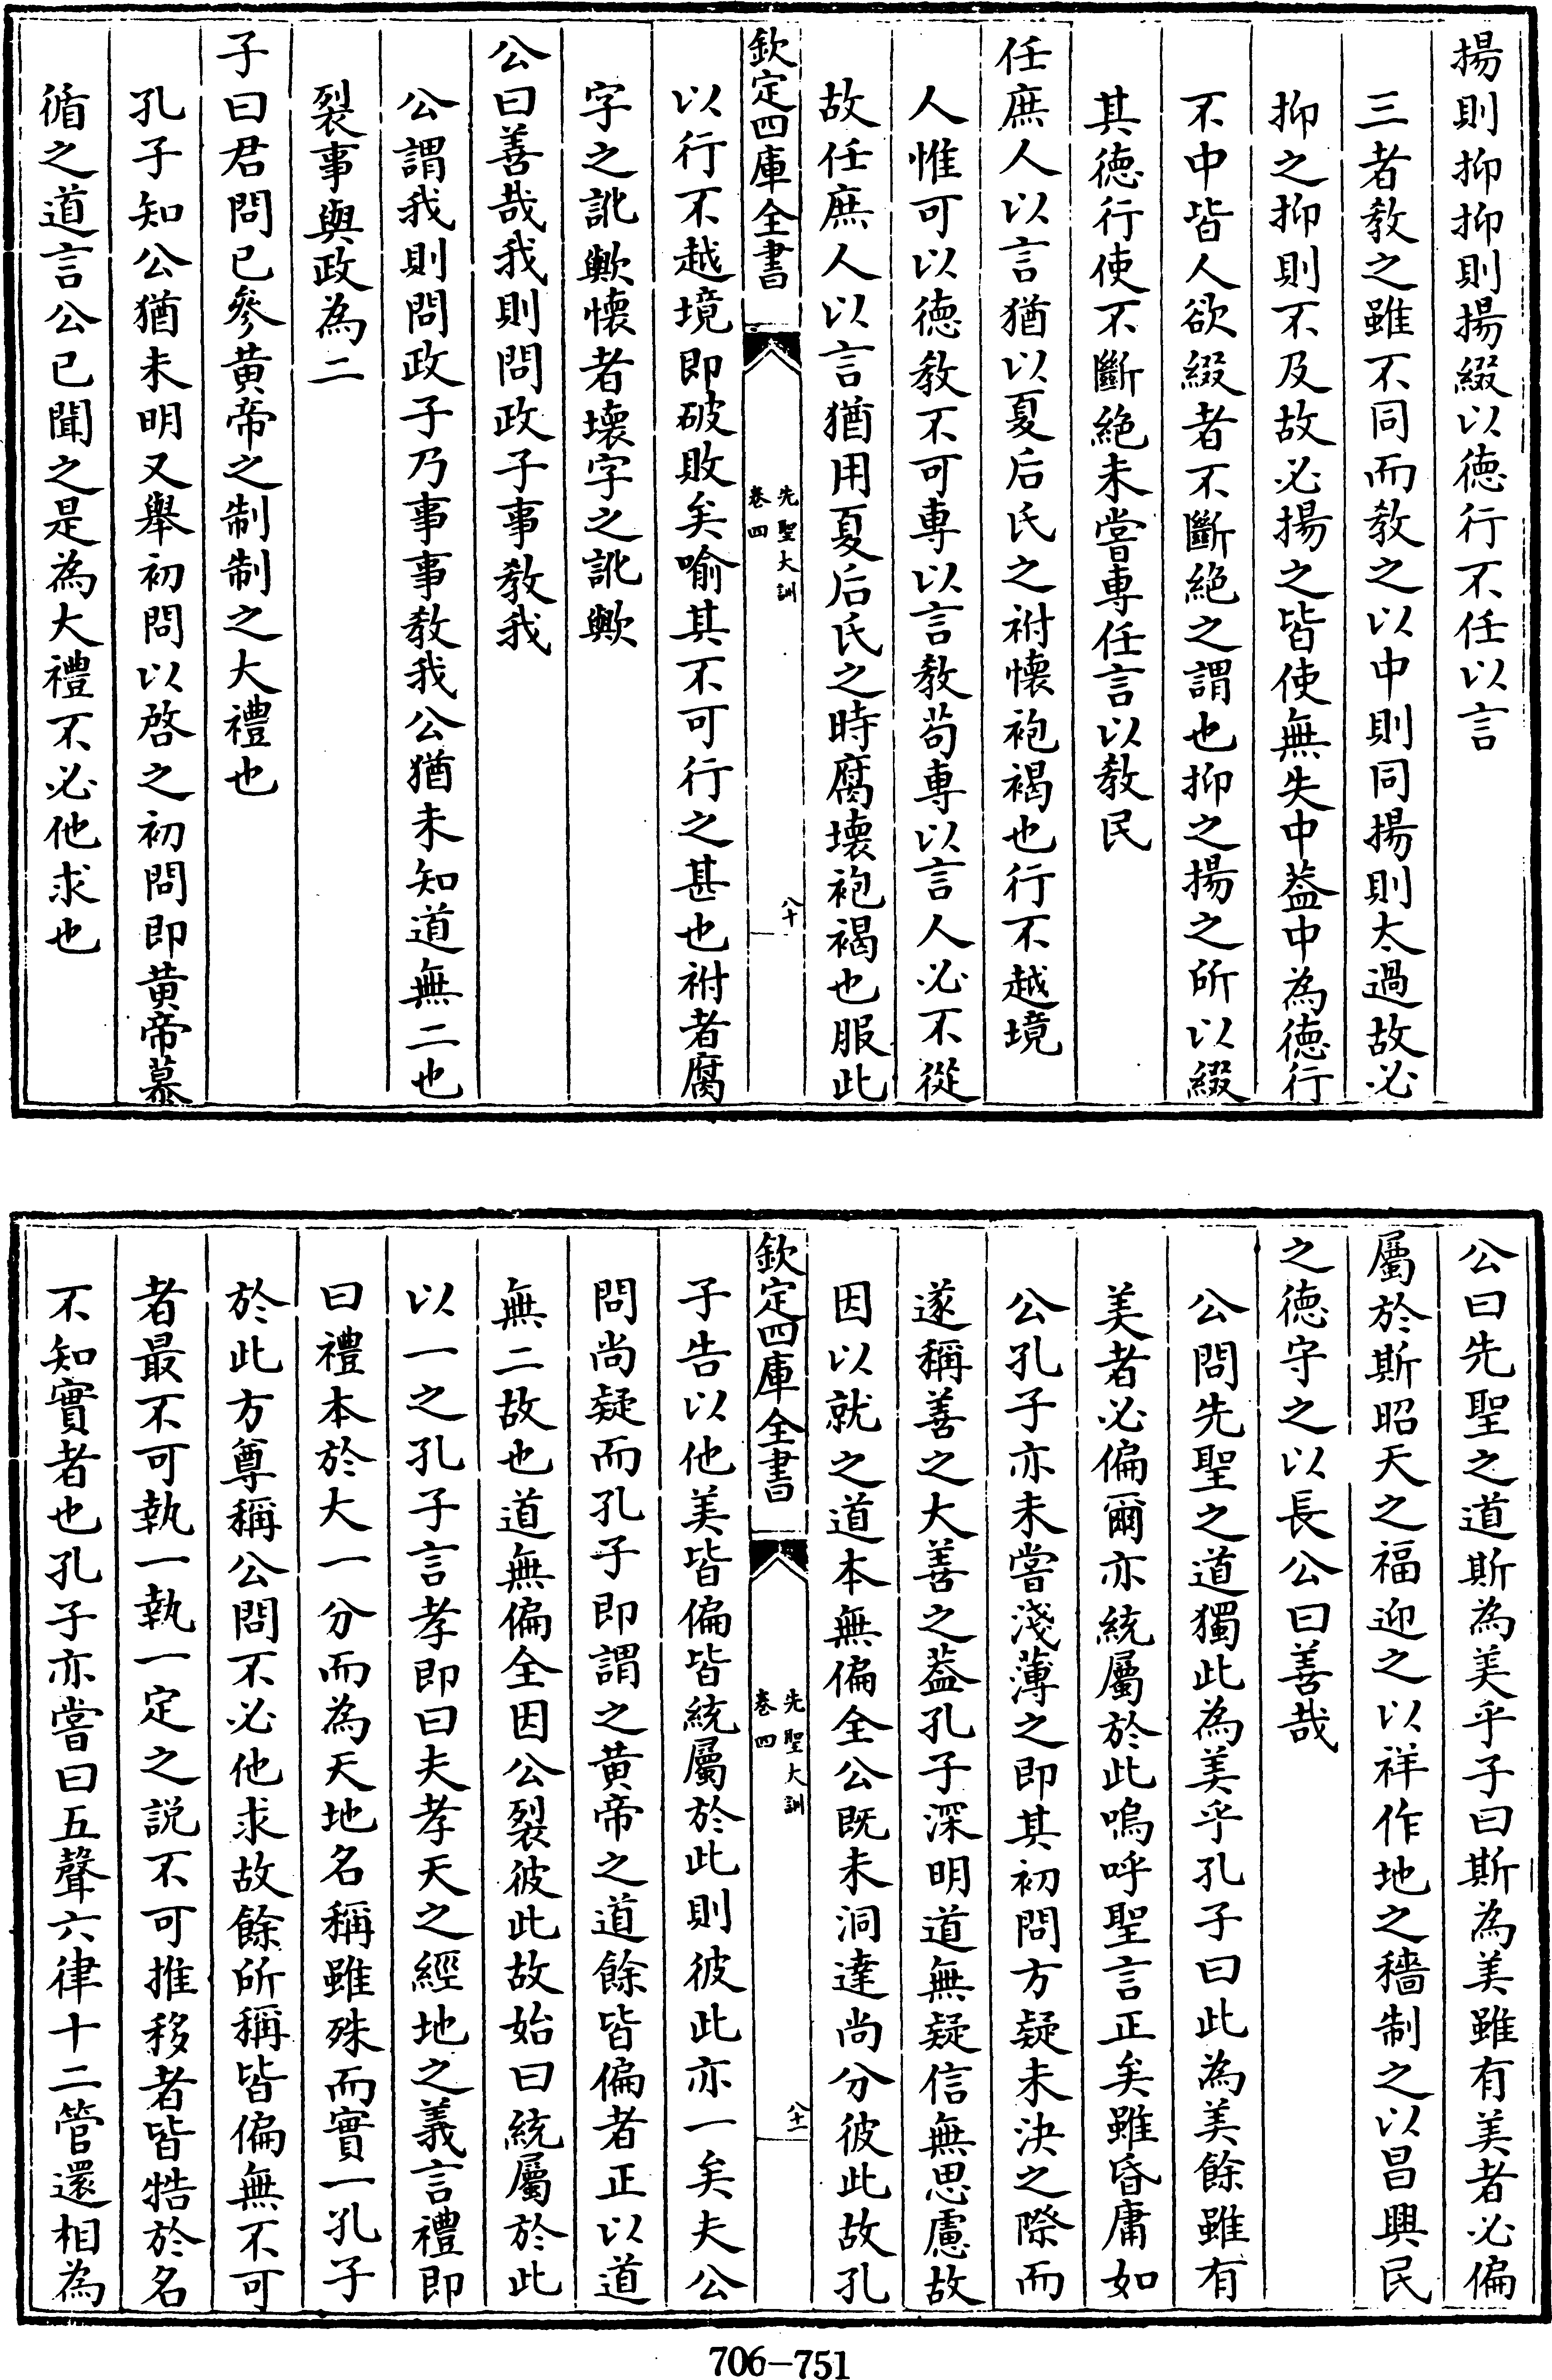 揚則抑抑則揚綴以德行不任以言
三者教之雖不同而教之以中則同揚則太過故必
抑之抑則不及故必揚之皆使無失中葢中為德行
不中皆人欲綴者不斷絶之謂也抑之揚之所以綴
其德行使不斷絶未嘗專任言以教民
任庶人以言猶以夏后氏之祔懷袍褐也行不越境
人惟可以德教不可專以言教苟專以言人必不從
故任庶人以言猶用夏后氏之時腐壊袍褐也服此
欽定四庫全書
先聖大訓
卷四
八十
以行不越境即破敗矣喻其不可行之甚也祔者腐
字之訛歟懷者壊字之訛歟
公曰善哉我則問政子事教我
公謂我則問政子乃事事教我公猶未知道無二也
裂事與政為二
子曰君問已參黄帝之制制之大禮也
孔子知公猶未明又舉初問以啓之初問即黄帝慕
循之道言公已聞之是為大禮不必他求也
公曰先聖之道斯為美乎子曰斯為美雖有美者必偏
屬於斯昭天之福迎之以祥作地之穡制之以昌興民
之德守之以長公曰善哉
公問先聖之道獨此為美乎孔子曰此為美餘雖有
美者必偏爾亦統屬於此嗚呼聖言正矣雖昏庸如
公孔子亦未嘗淺薄之即其初問方疑未決之際而
遂稱善之大善之葢孔子深明道無疑信無思慮故
因以就之道本無偏全公既未洞達尚分彼此故孔
欽定四庫全書
先聖大訓
卷四
八十一
子告以他美皆偏皆統屬於此則彼此亦一矣夫公
問尚疑而孔子即謂之黄帝之道餘皆偏者正以道
無二故也道無偏全因公裂彼此故始曰統屬於此
以一之孔子言孝即曰夫孝天之經地之義言禮即
曰禮本於大一分而為天地名稱雖殊而實一孔子
於此方尊稱公問不必他求故餘所稱皆偏無不可
者最不可執一執一定之說不可推移者皆牿於名
不知實者也孔子亦嘗曰五聲六律十二管還相為
706-751